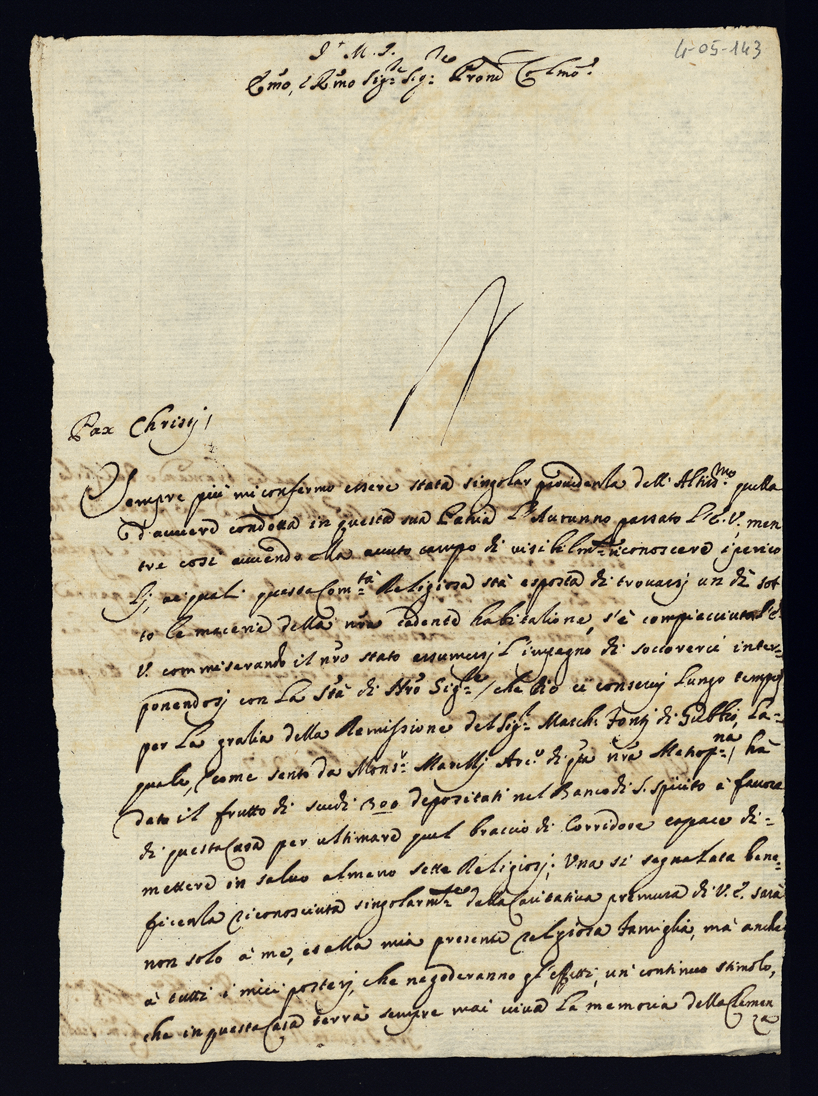 4-05-143
J. M. J.
Emo, e Rmo Sigre Sigre Prone Colmo
Pax Christi,
Sempre più mi confermo essere stata singolar providenza dell' Altissmo quella
d'avere condotta in questa sua Patria l' Autunno passato l' E. V. men
tre così avendo ella avuto campo di visibilmte riconoscere i perico
li, ai quali questa Comtà Religiosa stà esposta di trovarsi un dì sot
to le macerie della nra cadente habitazione, s'è compiacciuta l' E.
V. commiserando il nro stato assumersi l' impegno di soccorrerci inter-
ponendosi con la Stà di Nro Sigre / che Dio ci conservi lungo tempo
per la grazia della Remissione del Sigr March: Fonti di Gubbio, la-
quale, / come sento da Monsr Marelli Arco di qta nra Metropna / hà
dato il frutto di scudi 300 depositati nel Banco di S. Spirito à favore
di questa Casa per ultimare quel braccio di Corridore capace di-
mettere in salvo almeno sette Religiosi; Una sì segnalata bene-
ficenza riconosciuta singolarmte della Caritativa premura di V. E. sarà
non solo à me, e alla mia presente religiosa famiglia, mà anche
à tutti i miei posteri, che ne goderanno gl' effetti, un continuo stimolo,
che in questa Casa terrà sempre mai viva la memoria della Clemen
za